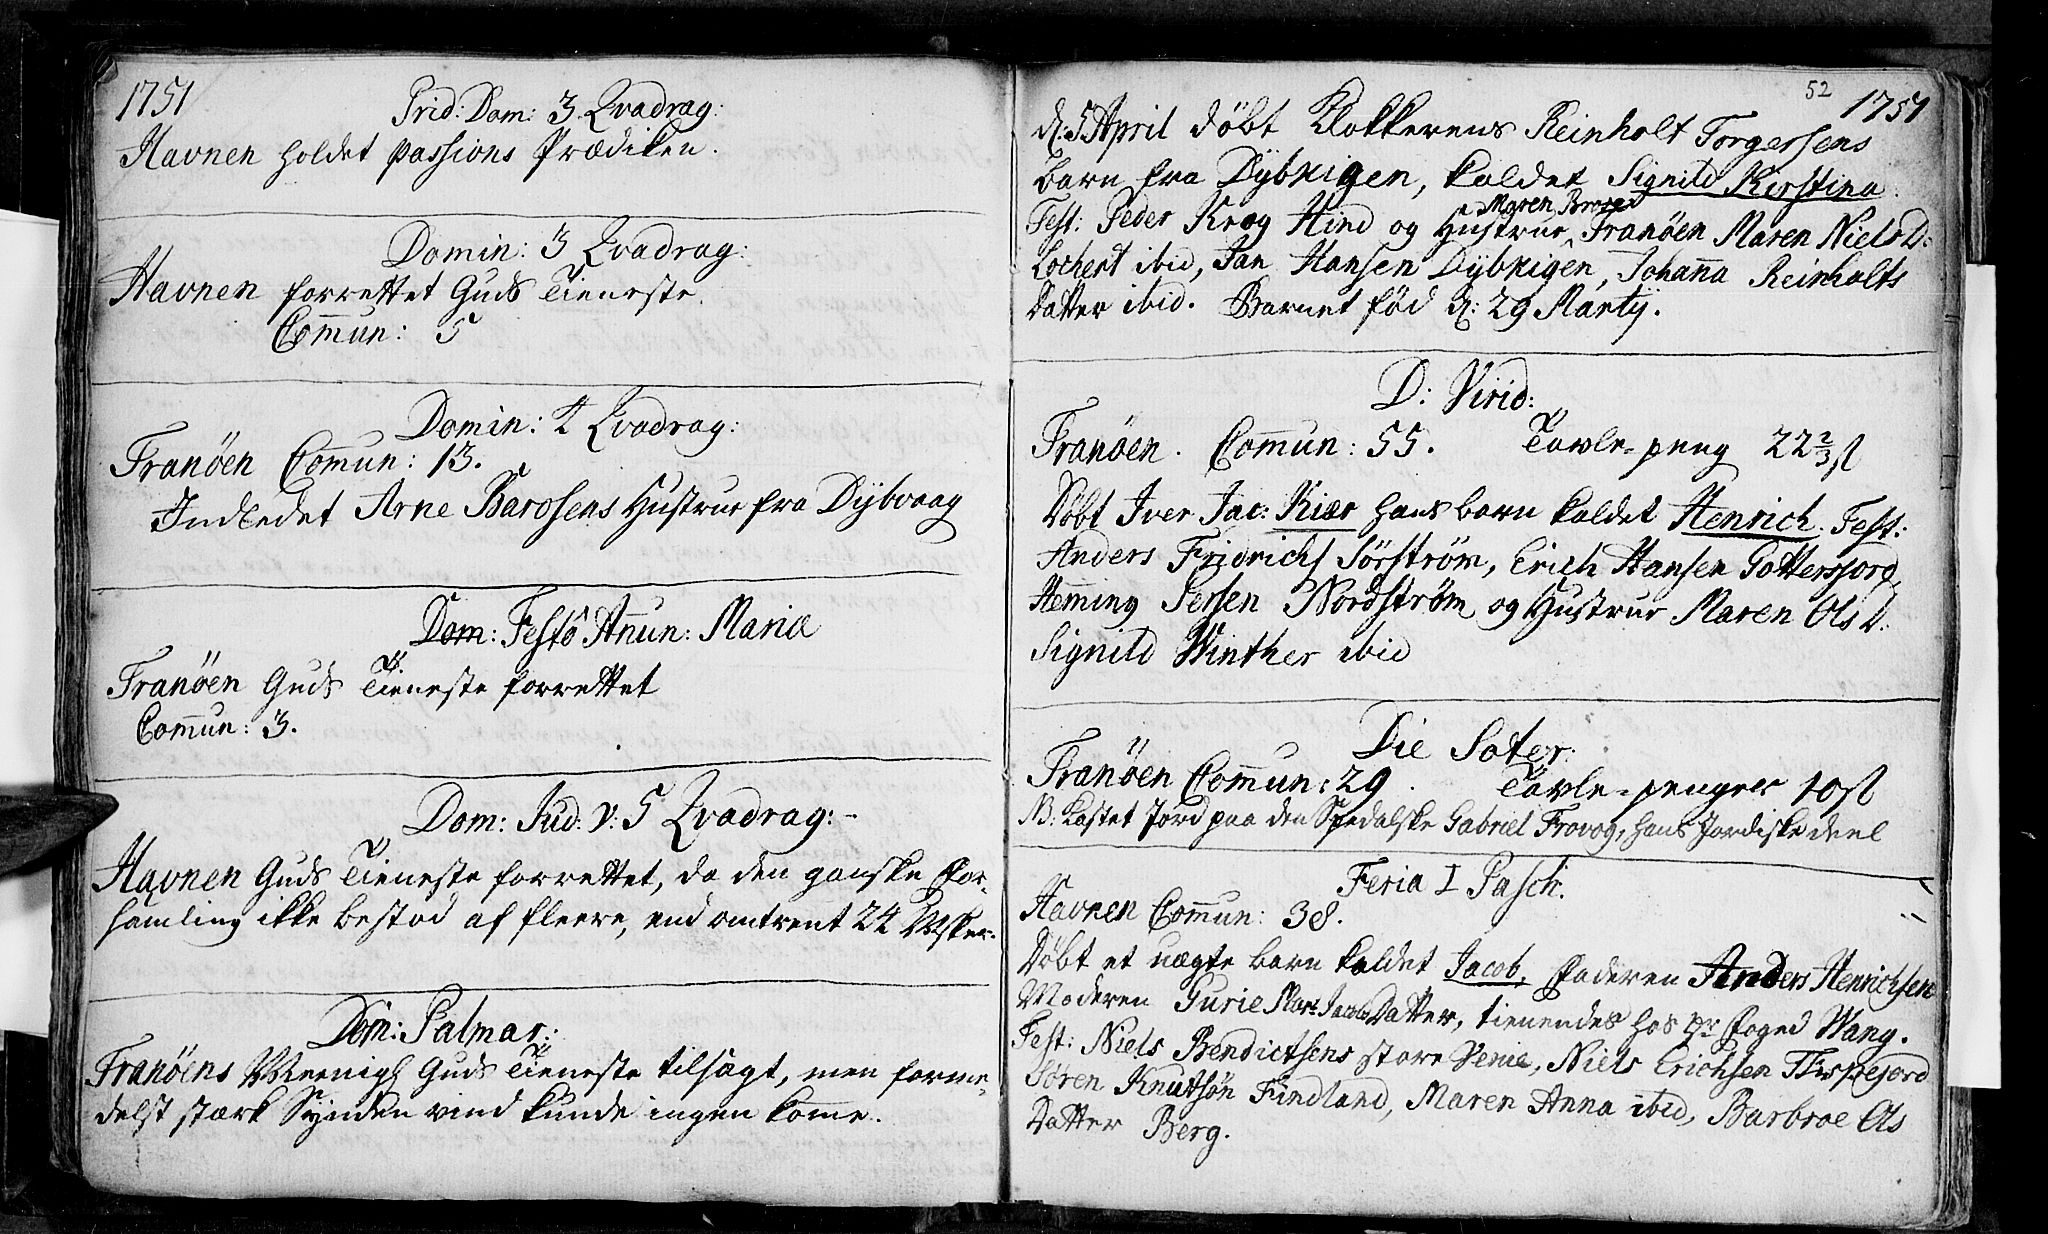 1751
Prid: Dom: 3. Qvadrag:
Havnen holdet passions Prædiken.
Domin: 3 Qvadrag:
Havnen forrettet Guds Tieneste.
Com̄un: 5
Domin: 4 Qvadrag:
Tranöen Com̄un: 13.
Indledet Arne Barosens Hustrue fra Dybvaag
Dom: Festo An̄un: Mariæ
Tranöen Guds Tieneste forrettet
Com̄un: 3.
Dom: Jud: v: 5 Qvadrag:-
Havnen Guds Tieneste forrettet, da den ganske For-
samling ikke bestod af fleere, end omtrent 24 Msker.
Dom: Palmar:
Tranöens Meenigh Guds Tieneste tilsagt, men forme-
delst stærk Synden vind kunde ingen kom̄e.
52
1751
d: 5 April döbt Klokkerens Reinholt Torgersens
barn fra Dybkigen, kaldet Signild Kirstina.
Test: Peder Krog Hind og Hustrue Tranöen Maren Niels D:
Maren
Lochert ibid, Jan Hansen Dybkigen, Johan̄a Reinholts
Datter ibid. Barnet fød d: 29 Martij.
D: Virid:
Tranöen. Com̄un: 55. Tavle-peng 22 2/3 ſ
Döbt Iver Jac: Kiær hans barn kaldet Henrich. Test:
Anders Fridrichs Sörström, Erich Hansen Gottesfjord,
Hem̄ing Persen Nordström og Hustrue Maren Ols D.
Signild Winther ibid
Die Sater:
Tranöen Com̄un: 29. Tavle-penger 10 ſ
NB: kastet Jord paa den Spedalske Gabriel Frovog, hans Jordiske deel
Feria I Pasch:
Havnen Com̄un: 38.
Döbt et uægte barn kaldet Jacob, Faderen Anders Henrichsen
Moderen Gurie Jacobs Datter, tienendes hos Hr Foged Wang.
Test: Niels Bendictsens store Venie, Niels Erichsen
Sören Knutsön Findland, Maren Anna ibid, Barbroe Ols
Datter Berg.